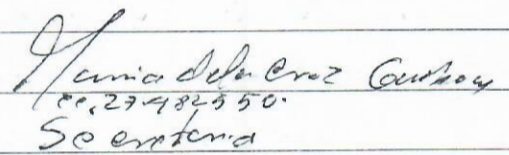 Maria dela Cruz
cc. 27482550.
Secretaria